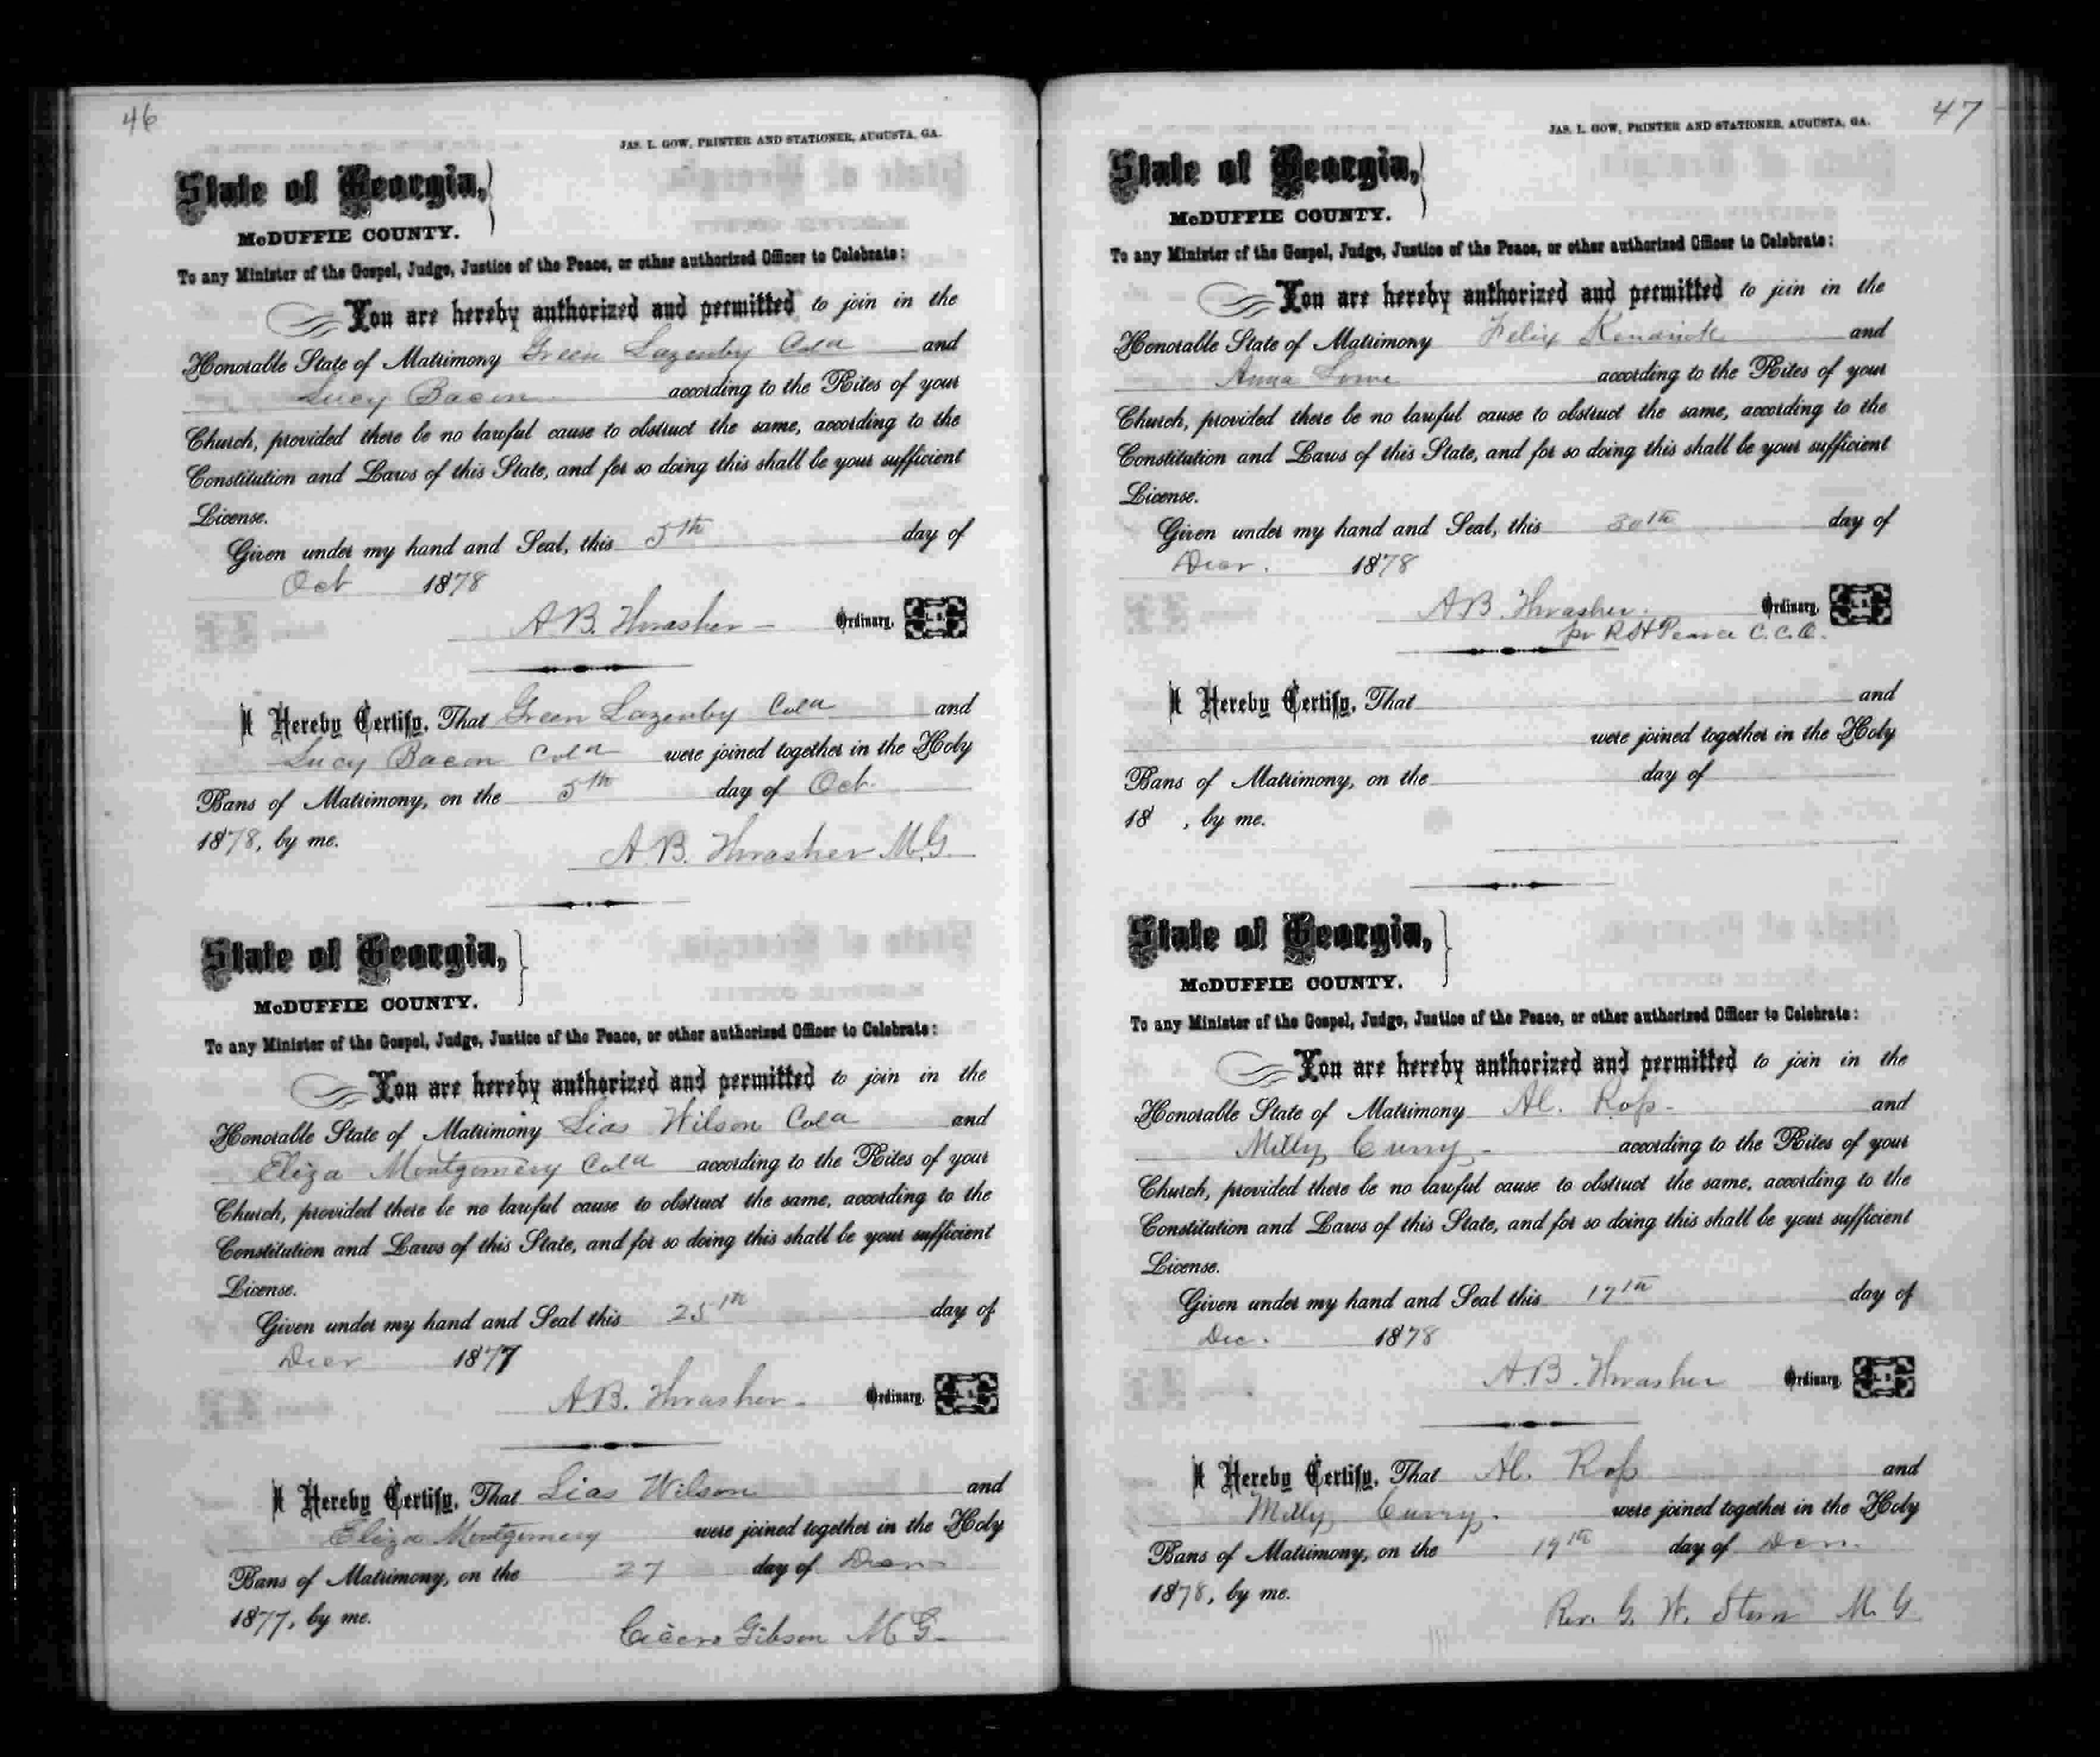 46
JAS. L. GOW, PRINTER AND STATIONER, AUGUSTA, GA.
State of Georgia,
McDUFFIE COUNTY.
To any Minister of the Gospel, Judge, Justice of the Peace, or other authorized Officer to Celebrate:
You are hereby authorized and permitted to join in the
Honorable State of Matrimony Green Lazenby Cold and
Lucy Bacon according to the Rites of your
Church, provided there be no lawful cause to obstruct the same, according to the
Constitution and Laws of this State, and for so doing this shall be your sufficient
License.
Given under my hand and Seal, this 5th day of
Oct 1878
A. B. Thrasher Ordinary. L. S.
I Hereby Certify, That Green Lazenby Cold and
Lucy Bacon Cold were joined together in the Holy
Bans of Matrimony, on the 5th day of Oct.
1878, by me.
A. B. Thrasher M.G.
State of Georgia,
McDUFFIE COUNTY.
To any Minister of the Gospel, Judge, Justice of the Peace, or other authorized Officer to Celebrate:
You are hereby authorized and permitted to join in the
Honorable State of Matrimony Lias Wilson Cold and
Eliza Montgomery Cold according to the Rites of your
Church, provided there be no lawful cause to obstruct the same, according to the
Constitution and Laws of this State, and for so doing this shall be your sufficient
License.
Given under my hand and Seal this 25th day of
Decr 1877
A. B. Thrasher. Ordinary. L. S.
I Hereby Certify, That Lias Wilson and
Eliza Montgomery were joined together in the Holy
Bans of Matrimony, on the 27 day of Decr
1877, by me.
Cicero Gibson M G.
47
JAS. L. GOW, PRINTER AND STATIONER, AUGUSTA, GA.
State of Georgia,
McDUFFIE COUNTY.
To any Minister of the Gospel, Judge, Justice of the Peace, or other authorized Officer to Celebrate:
You are hereby authorized and permitted to join in the
Honorable State of Matrimony Felix Kendrick and
Anna according to the Rites of your
Church, provided there be no lawful cause to obstruct the same, according to the
Constitution and Laws of this State, and for so doing this shall be your sufficient
License.
Given under my hand and Seal, this 30th day of
Decr. 1878
A B. Thrasher. Ordinary. L. S.
pr R H Pearce C. C. O.
I Hereby Certify, That and
were joined together in the Holy
Bans of Matrimony, on the day of
18 , by me.
State of Georgia,
McDUFFIE COUNTY.
To any Minister of the Gospel, Judge, Justice of the Peace, or other authorized Officer to Celebrate:
You are hereby authorized and permitted to join in the
Honorable State of Matrimony Al. Ross. and
Milly Curry according to the Rites of your
Church, provided there be no lawful cause to obstruct the same, according to the
Constitution and Laws of this State, and for so doing this shall be your sufficient
License.
Given under my hand and Seal this 17th day of
Dec. 1878
A. B. Thrasher Ordinary. L. S.
I Hereby Certify, That Al. Ross and
Milly Curry. were joined together in the Holy
Bans of Matrimony, on the 19th day of Decr.
1878, by me.
Rev. G. W. M. G.